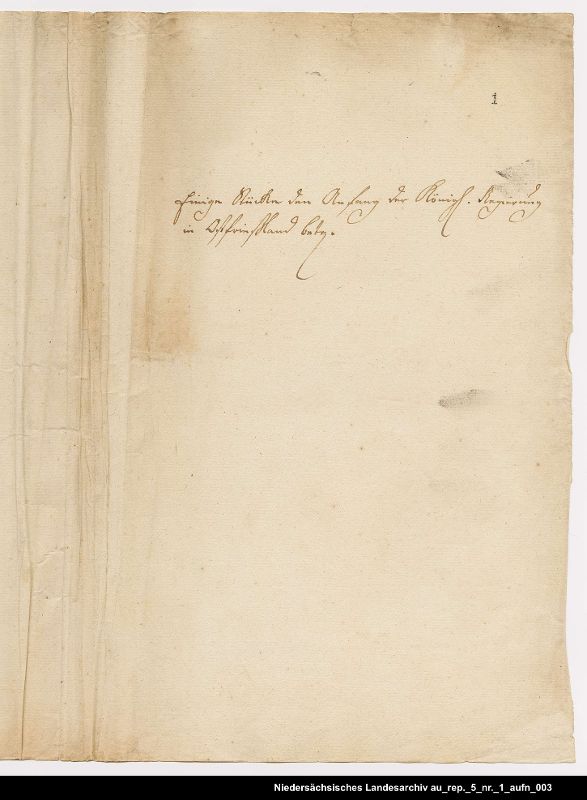 1
Einige Stücke den Anfang der Königl. Regierung
in Ostfriesland betr.
Niedersächsisches Landesarchiv au_rep._5_nr._1_aufn_003